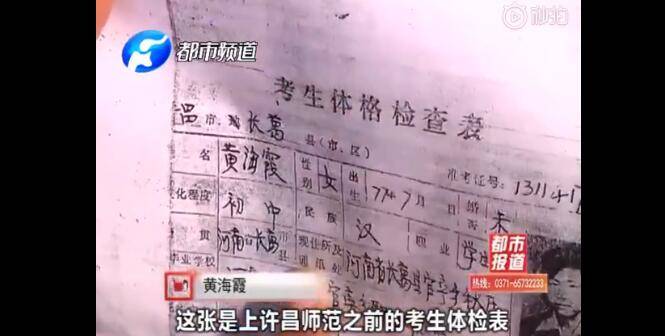 秒拍
都市频道
考生体格检查表
市、 长葛 县(市、区)
准考证号: 1311
名 黄海霞 性别 女 出生 77年7月 日 婚否 未
化程度 初中 民族 汉 职业 学生
贯 河南省长葛 市县 现住所及
河南省长葛县官亭乡
毕业学校
都市报道
热线: 0371-65732233
黄海霞
这张是上许昌师范之前的考生体检表